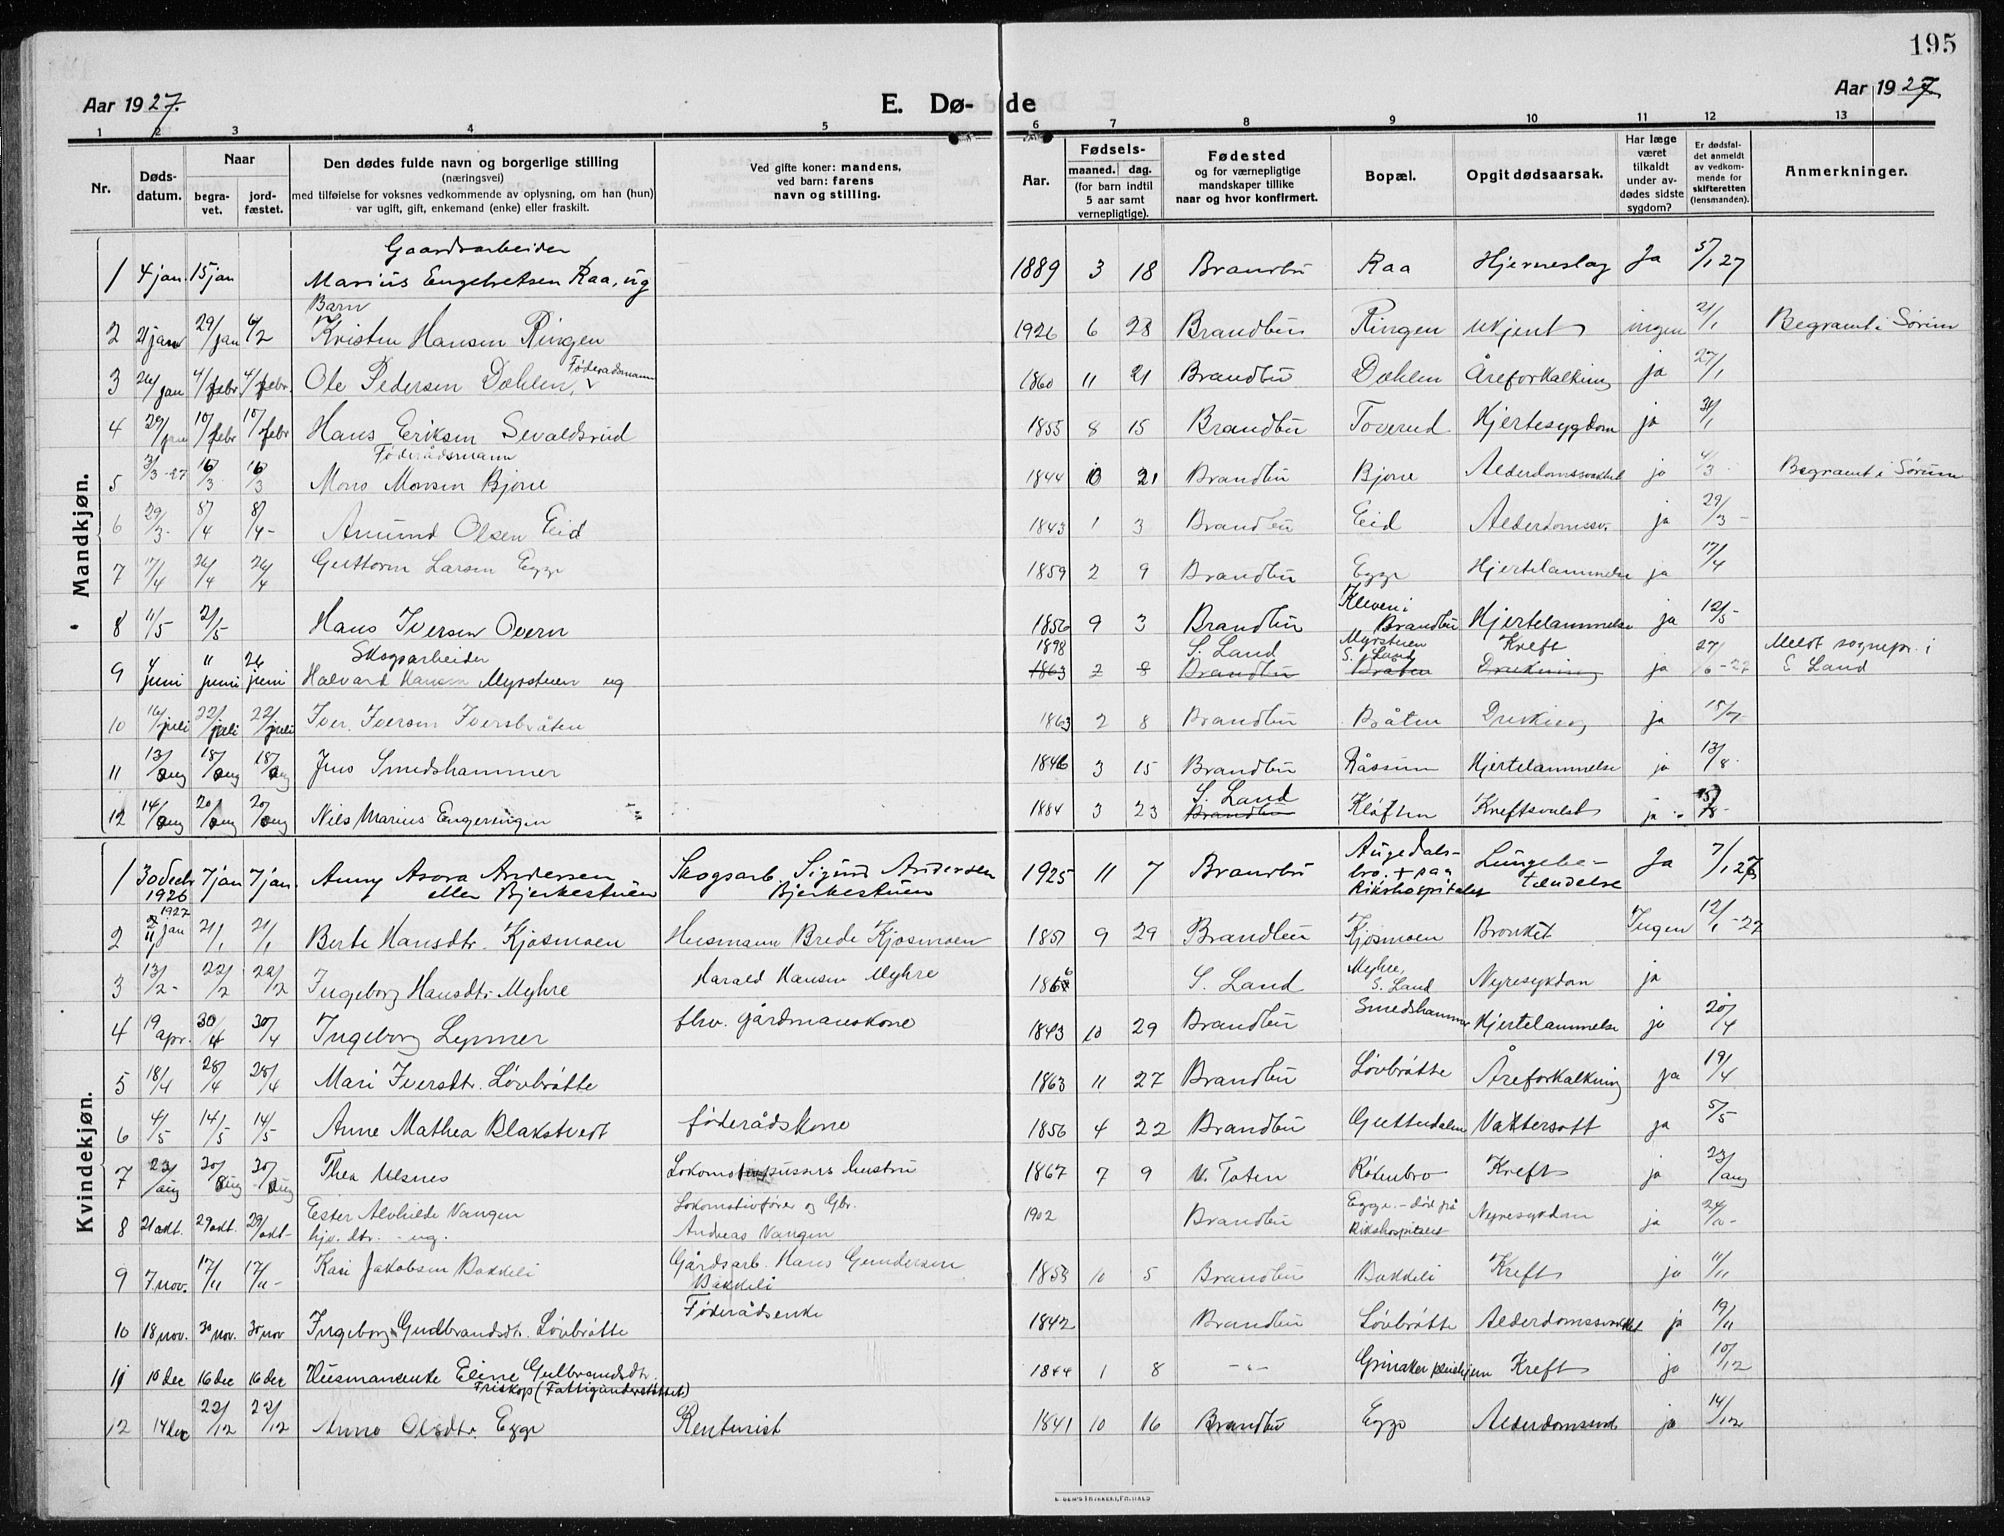 195
Aar 1927.
E. Dø- de
Aar 1927
1 2 3 4 5 6 7 8 9 10 11 12 13
Nr.
Døds-
datum.
Naar
begra-
vet.
jord-
fæstet.
Den dødes fulde navn og borgerlige stilling
(næringsvei)
med tilføielse for voksnes vedkommende av oplysning, om han (hun)
var ugift, gift, enkemand (enke) eller fraskilt.
Ved gifte koner: mandens,
ved barn: farens
navn og stilling.
Aar.
Fødsels-
maaned. dag.
(for barn indtil
5 aar samt
vernepligtige).
Fødested
og for værnepligtige
mandskaper tillike
naar og hvor konfirmert.
Bopæl.
Opgit dødsaarsak.
Har læge
været
tilkaldt
under av-
dødes sidste
sygdom?
Er dødsfal-
det anmeldt
av vedkom-
mende for
skifteretten
(lensmanden).
Anmerkninger.
Mandkjøn.
Gaardsarbeider
1 4 jan. 15 jan Marius Engebretsen Raa, ug 1889 3 18 Brandbu Raa Hjerneslag Ja 5/1 27
Barn
2 21 jan 29/jan 6/2 Kristen Hansen Ringen 1926 6 28 Brandbu Ringen ukjent ingen 21/1 Begravet i Sørum
3 26/jan 4/febr 4/febr Ole Pedersen Dæhlen, Føderadsmann 1860 11 21 Brandbu Dæhlen Åreforkalkning ja 27/1
4 29/jan 10/febr 10/febr Hans Eriksen Sevaldsrud 1855 8 15 Brandbu Toverud Hjertesygdom ja 31/1
Føderådsmann
5 3/3-27 16/3 16/3 Mons Monsen Bjone 1844 10 21 Brandbu Bjone Alderdomssvakhet ja 4/3 Begravet i Sørum
6 29/3- 5/4 8/4- Amund Olsen Eid 1843 1 3 Brandbu Eid Alderdomssv. ja 29/3-
7 17/4 26/4 26/4 Guttorm Larsen Egge 1859 2 9 Brandbu Egge Hjertelammelse ja 17/4
8 11/5 21/5 Hans Iversen Overn 1856 9 3 Brandbu Kleven i Brandbu Hjertelammelse ja 12/5-
Skogsarbeider 1898 S. Land Myrstuen S. Land Kreft
9 4 juni 11 juni 26 juni Halvard Hansen Myrstuen ug 1863 2 8 Brandbu Bråten Drukning ja 27/6-27 Meldt sognepr. i S Land
10 16/juli 22/juli 22/juli Iver Iversen Iversbråten 1863 2 8 Brandbu Bråten Drukning ja 15/7-
11 13/aug 18/aug 18/aug Jens Smedshammer 1846 3 15 Brandbu Råssum Hjertelammelse ja 13/8-
S. Land
12 14/aug 20/aug 20/aug Nils Marius Engeningen 1884 3 23 Brandbu Kløften Kreftsvulst ja 15/8-
Kvindekjøn.
1 30 decbr 1926 7 jan 7 jan. Anny Asora Andersen eller Bjerkestuen Skogsarb. Sigurd Andersen Bjerkestuen 1925 11 7 Brandbu Augedals-bro. + paa Rikshospitalet Lungebe-tændelse Ja 7/1 27
2 1927 11 jan 21/1 21/1 Berte Hansdtr. Kjosmoen Husmann Brede Kjosmoen 1851 9 29 Brandbu Kjosmoen Bronkit Ingen 12/1-27
3 13/2- 22/2 22/2 Ingeborg Hansdtr Myhre Harald Hansen Myhre S. Land Myhre, S. Land Nyresykdom ja
4 19 apr. 30/4 30/4 Ingeborg Lynner fhv. gårdmanskone 1843 10 29 Brandbu Smedshammer Hjertelammelse ja 20/4
5 18/4 28/4 28/4 Mari Iversdtr. Løvbråtte 1863 11 27 Brandbu Løvbråtte Åreforkalkning ja 19/4
6 4/5 14/5 14/5 Anne Mathea Blakstvedt føderådskone 1856 4 22 Brandbu Guttudalen Vattersott ja 5/5
7 23/aug 30/aug 30/aug Thea Ulsnes Lokomotivpussers hustru 1867 7 9 V. Toten Røkenbro Kreft ja 23/aug
8 21 okt. 29 okt. 29/okt- Ester Alvhilde Vangen hjv. dtr. - ug. Lokomotivfører og Gbr. Andreas Vangen 1902 Brandbu Egge. - død på Rikshospitalet Nyresykdom ja 24/10-
9 7 nov. 17/11 17/11- Kari Jakobsen Bakkeli Gårdsarb. Hans Gundersen Bakkeli 1853 10 5 Brandbu Bakkeli Kreft ja 11/11
10 18 nov. 30 nov. 30 nov Ingeborg Gudbrandsdtr. Løvbråtte Føderådsenke 1842 Brandbu Løvbråtte Alderdomssvakhet ja 19/11
11 10 dec 16 dec 16 dec Husmansenke Eline Gulbrandsdtr. Friskop (Fattigunderstøttet) 1844 1 8 -"- Grinaker pleiehjem Kreft ja 10/12
12 14 dec 22/12 22/12 Anne Olsdtr. Egge Renterist 1841 10 16 Brandbu Egge Alderdomssvak ja 14/12